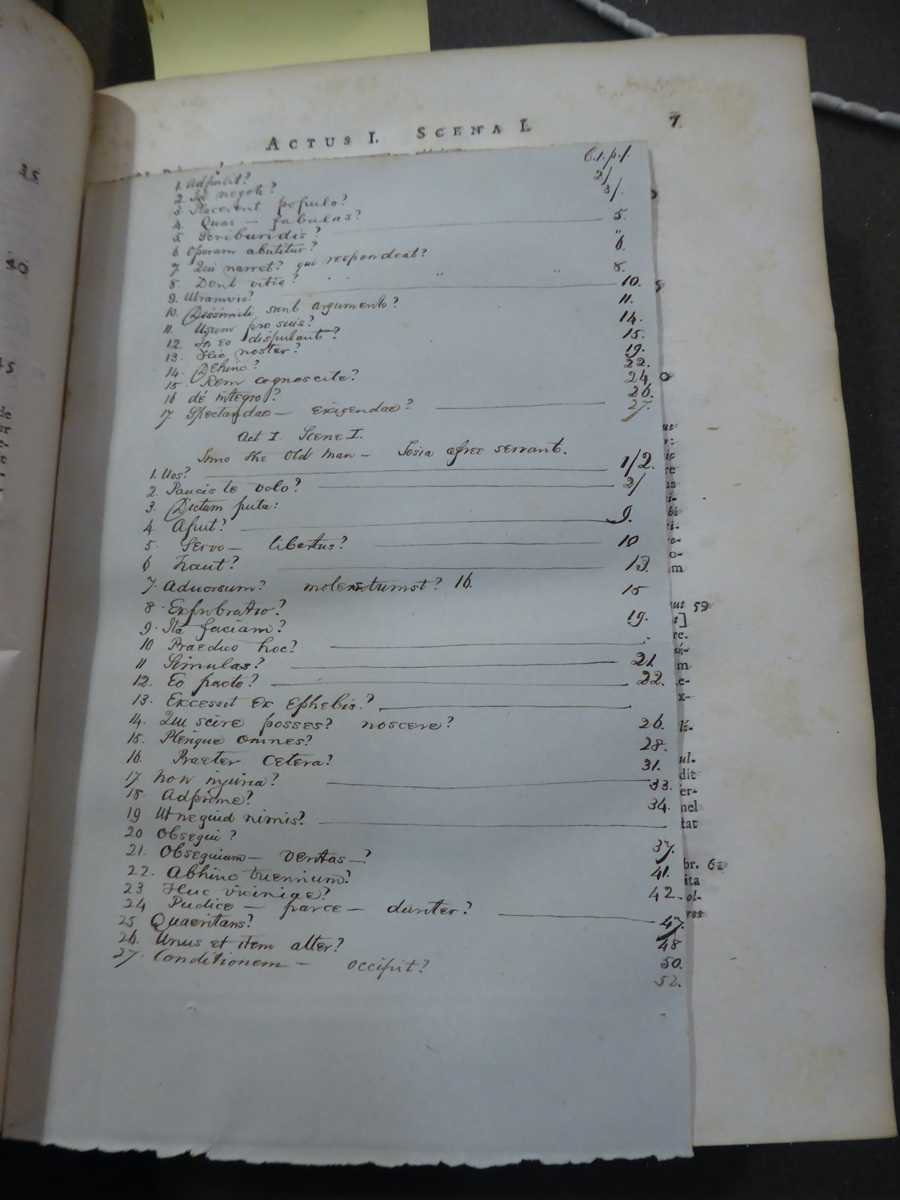 35
30
45
ACTUS I. SCENA I. 7.
1. Adpulit? 2/
2. Id negoti? 3/.
3 Placerent populo?
4. Quas — fabulas? 5.
5. Scribundis? "
6 Operam abutitur? 6.
7. Qui narret? qui respondeat?
8. Dent vitio? 8.
9. Utramvis? 10.
10. Dissimili sunt argumento? 11.
11. Usum pro suis? 14.
12. In eo disputant? 15.
13. Hic noster? 19.
14. Dehinc? 22.
15. Rem cognoscite? 24
16 de integro? 26.
17 Spectandae — exigendae? 27.
Act I. Scene I.
Simo the Old Man — Sosia a free servant.
1. Uos? 1/2.
2. Paucis te volo? 2/
3. Dictum puta:
4. Aput? 9.
5. Servo — libertus? 10
6 haut? 13.
7. Aduorsum? molestumst? 16. 15
8. Exprobratio? 19.
9. Ita faciam?
10 Praeduo hoc?
11 Simulas? 21.
12. Eo pacto? 22.
13. Excessit Ex Ephebis?
14. Qui scire posses? noscere? 26.
15. Plerique omnes? 28.
16. Praeter Cetera? 31.
17 non injuria? 33.
18. Adprime? 34.
19 Ut nequid nimis?
20 Obsequi? 37.
21. Obsequium — Veritas —? 41.
22. Abhinc triennium? 42.
23 Huc viciniae?
24 Pudice — parce — duriter? 47.
25 Quaeritans? 48
26. Unus et item alter? 50.
27. Conditionem — occipit? 52.